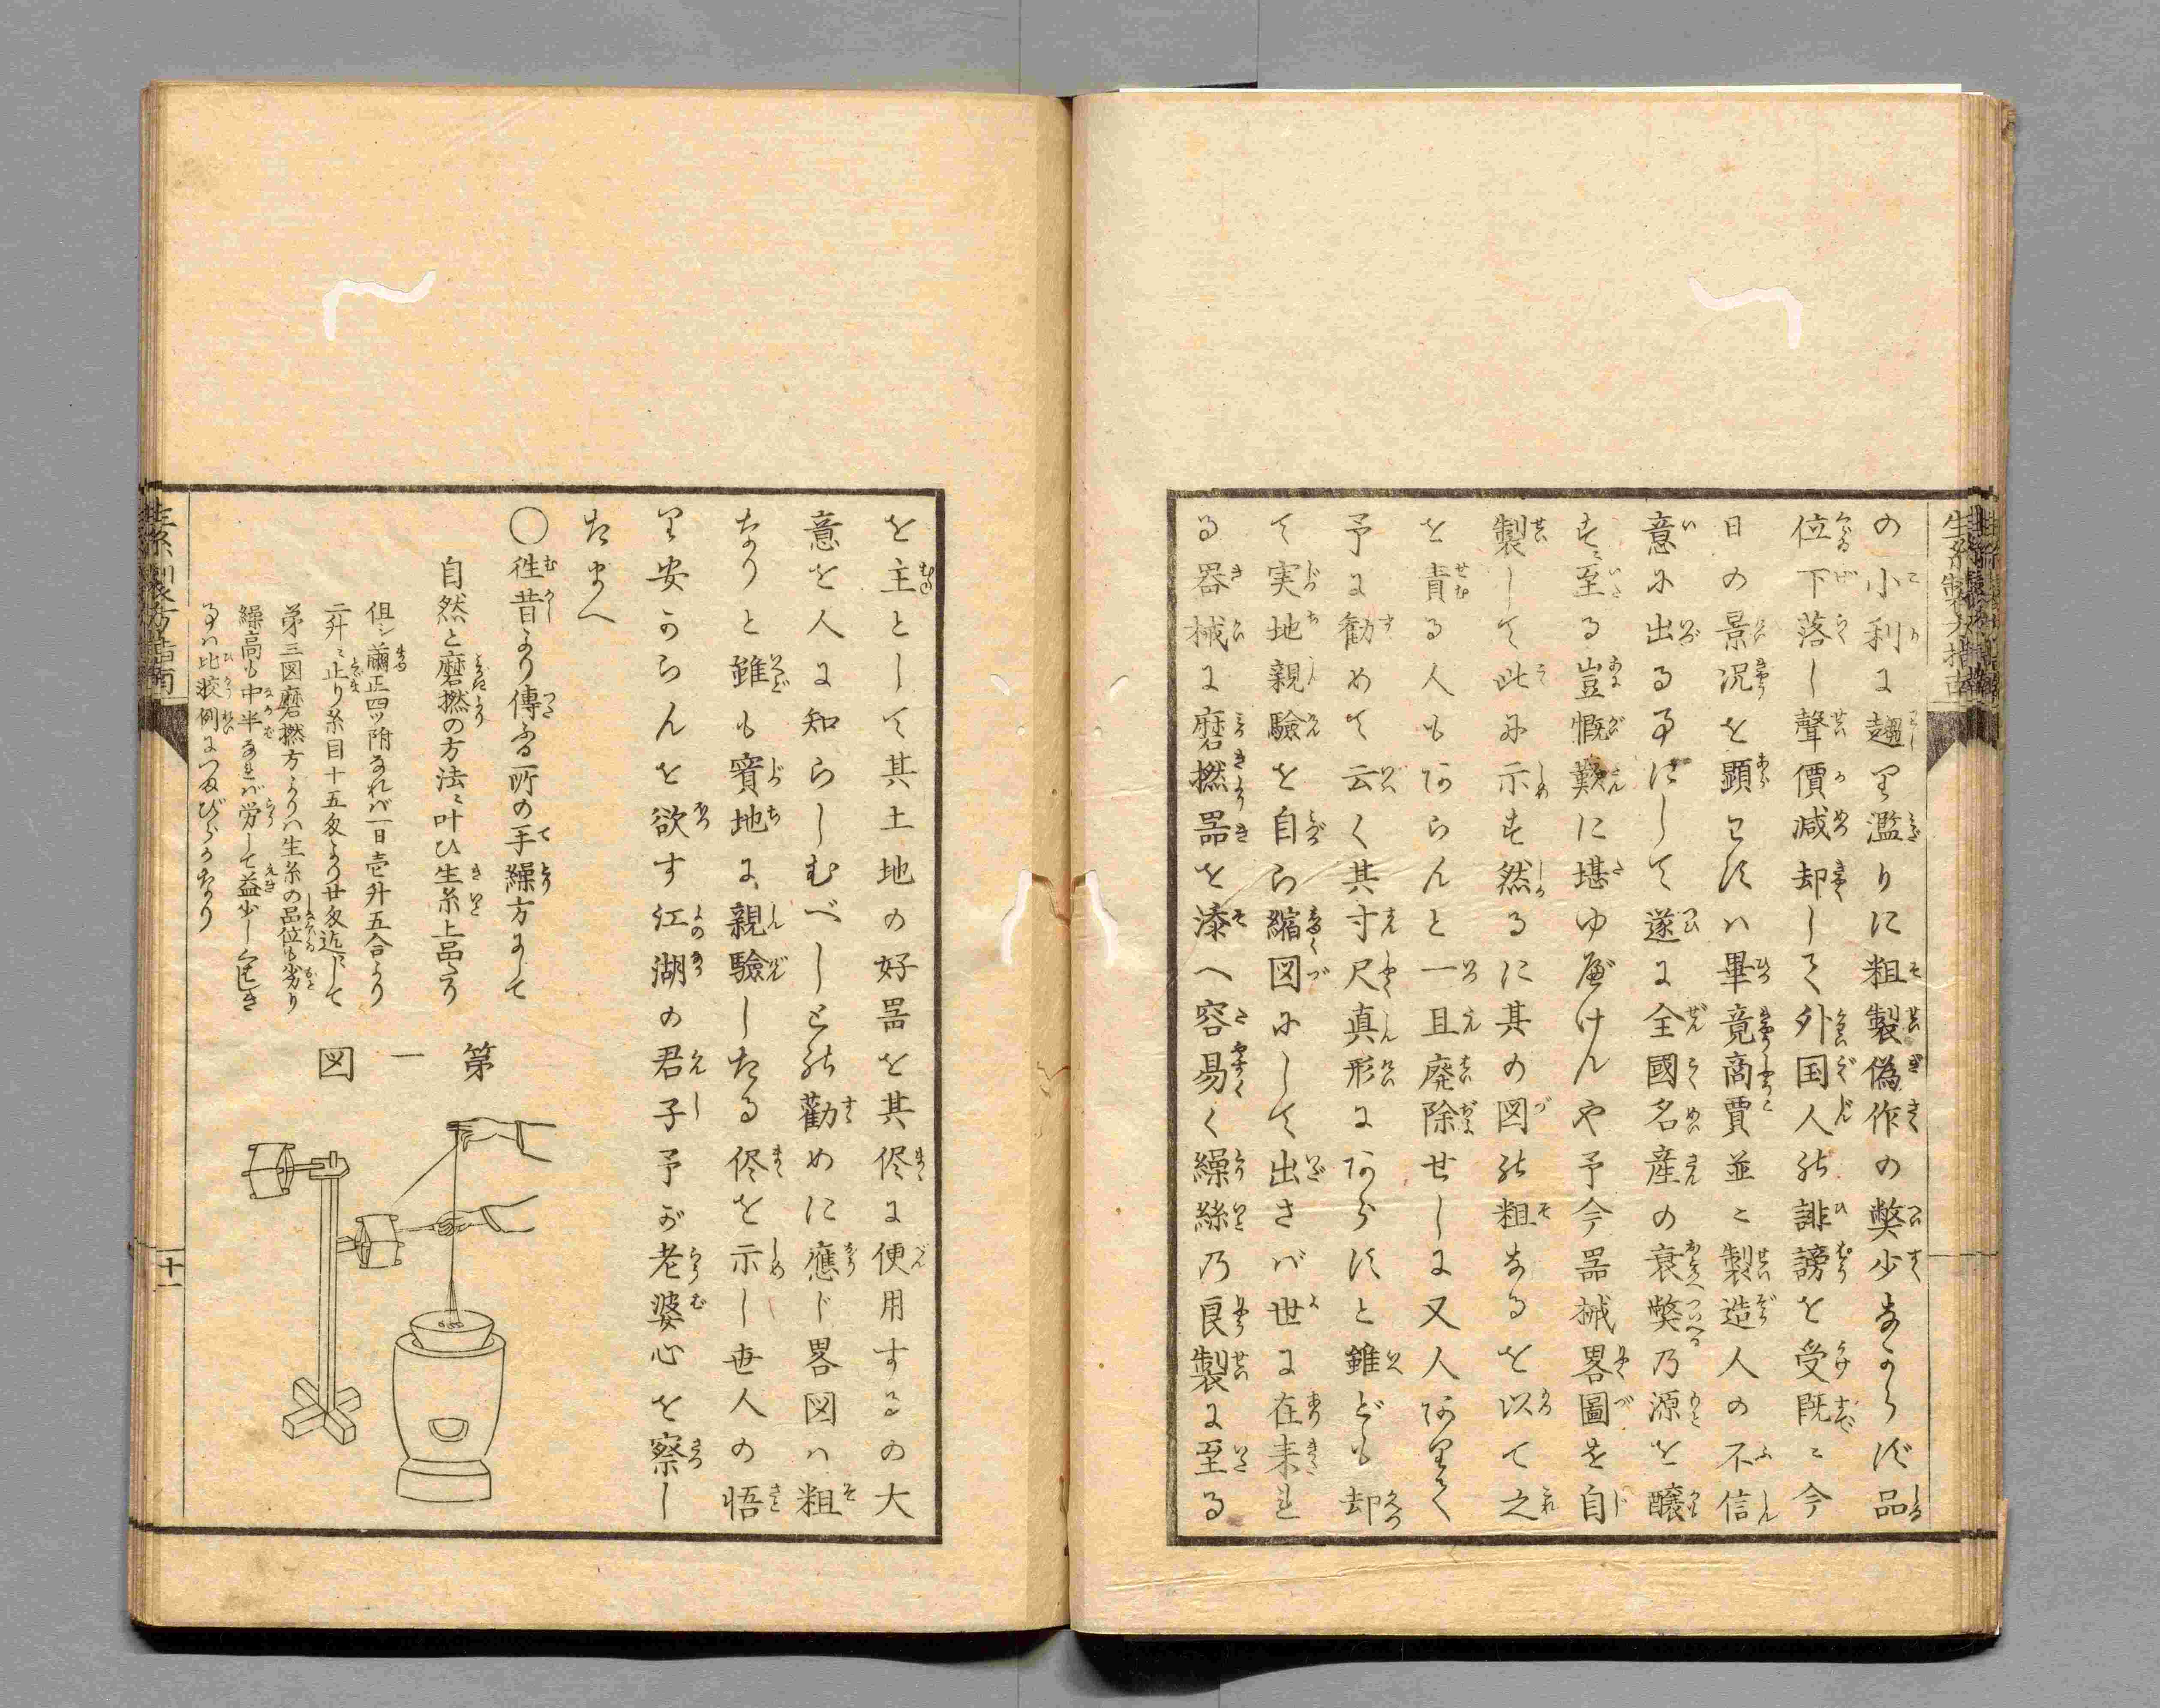 の小利に趨り濫りに粗製偽作の弊少なからず品
位下落し聲價減却して外国人の誹謗を受既ニ今
日の景况を顕わすハ畢竟商賈並ニ製造人の不信
意に出る事にして遂に全國名産の衰弊乃源を醸
すニ至る豈慨歎に堪ゆべけんや予今器械畧圖を自
製して此に示す然るに其の図の粗なるを以て之
を責る人もあらんと一旦廃除せしに又人ありて
予に勸めて云く其寸尺真形にあらずと雖ども却
て実地親驗を自ら縮図にして出さバ世に在来れ
る器械に磨撚器を漆へ容易く繰絲乃良製に至る
を主として其土地の好器を其侭に便用するの大
意を人に知らしむべしとの勸めに應じ畧図ハ粗
なりと雖も實地に親驗したる侭を示し世人の悟
り安からんを欲す江湖の君子予が老婆心を察し
たまへ
〇徃昔より傳ふる所の手繰方にして
自然と磨撚の方法ニ叶ひ生糸上品なり
但シ繭正四ツ附なれバ一日壱升五合より
二升ニ止り糸目十五匁より廿匁迄にして
第三図磨撚方よりハ生糸の品位も劣り
繰高も中半なれバ労して益少しく
事ハ比較例につまびらかなり
第一図
十一